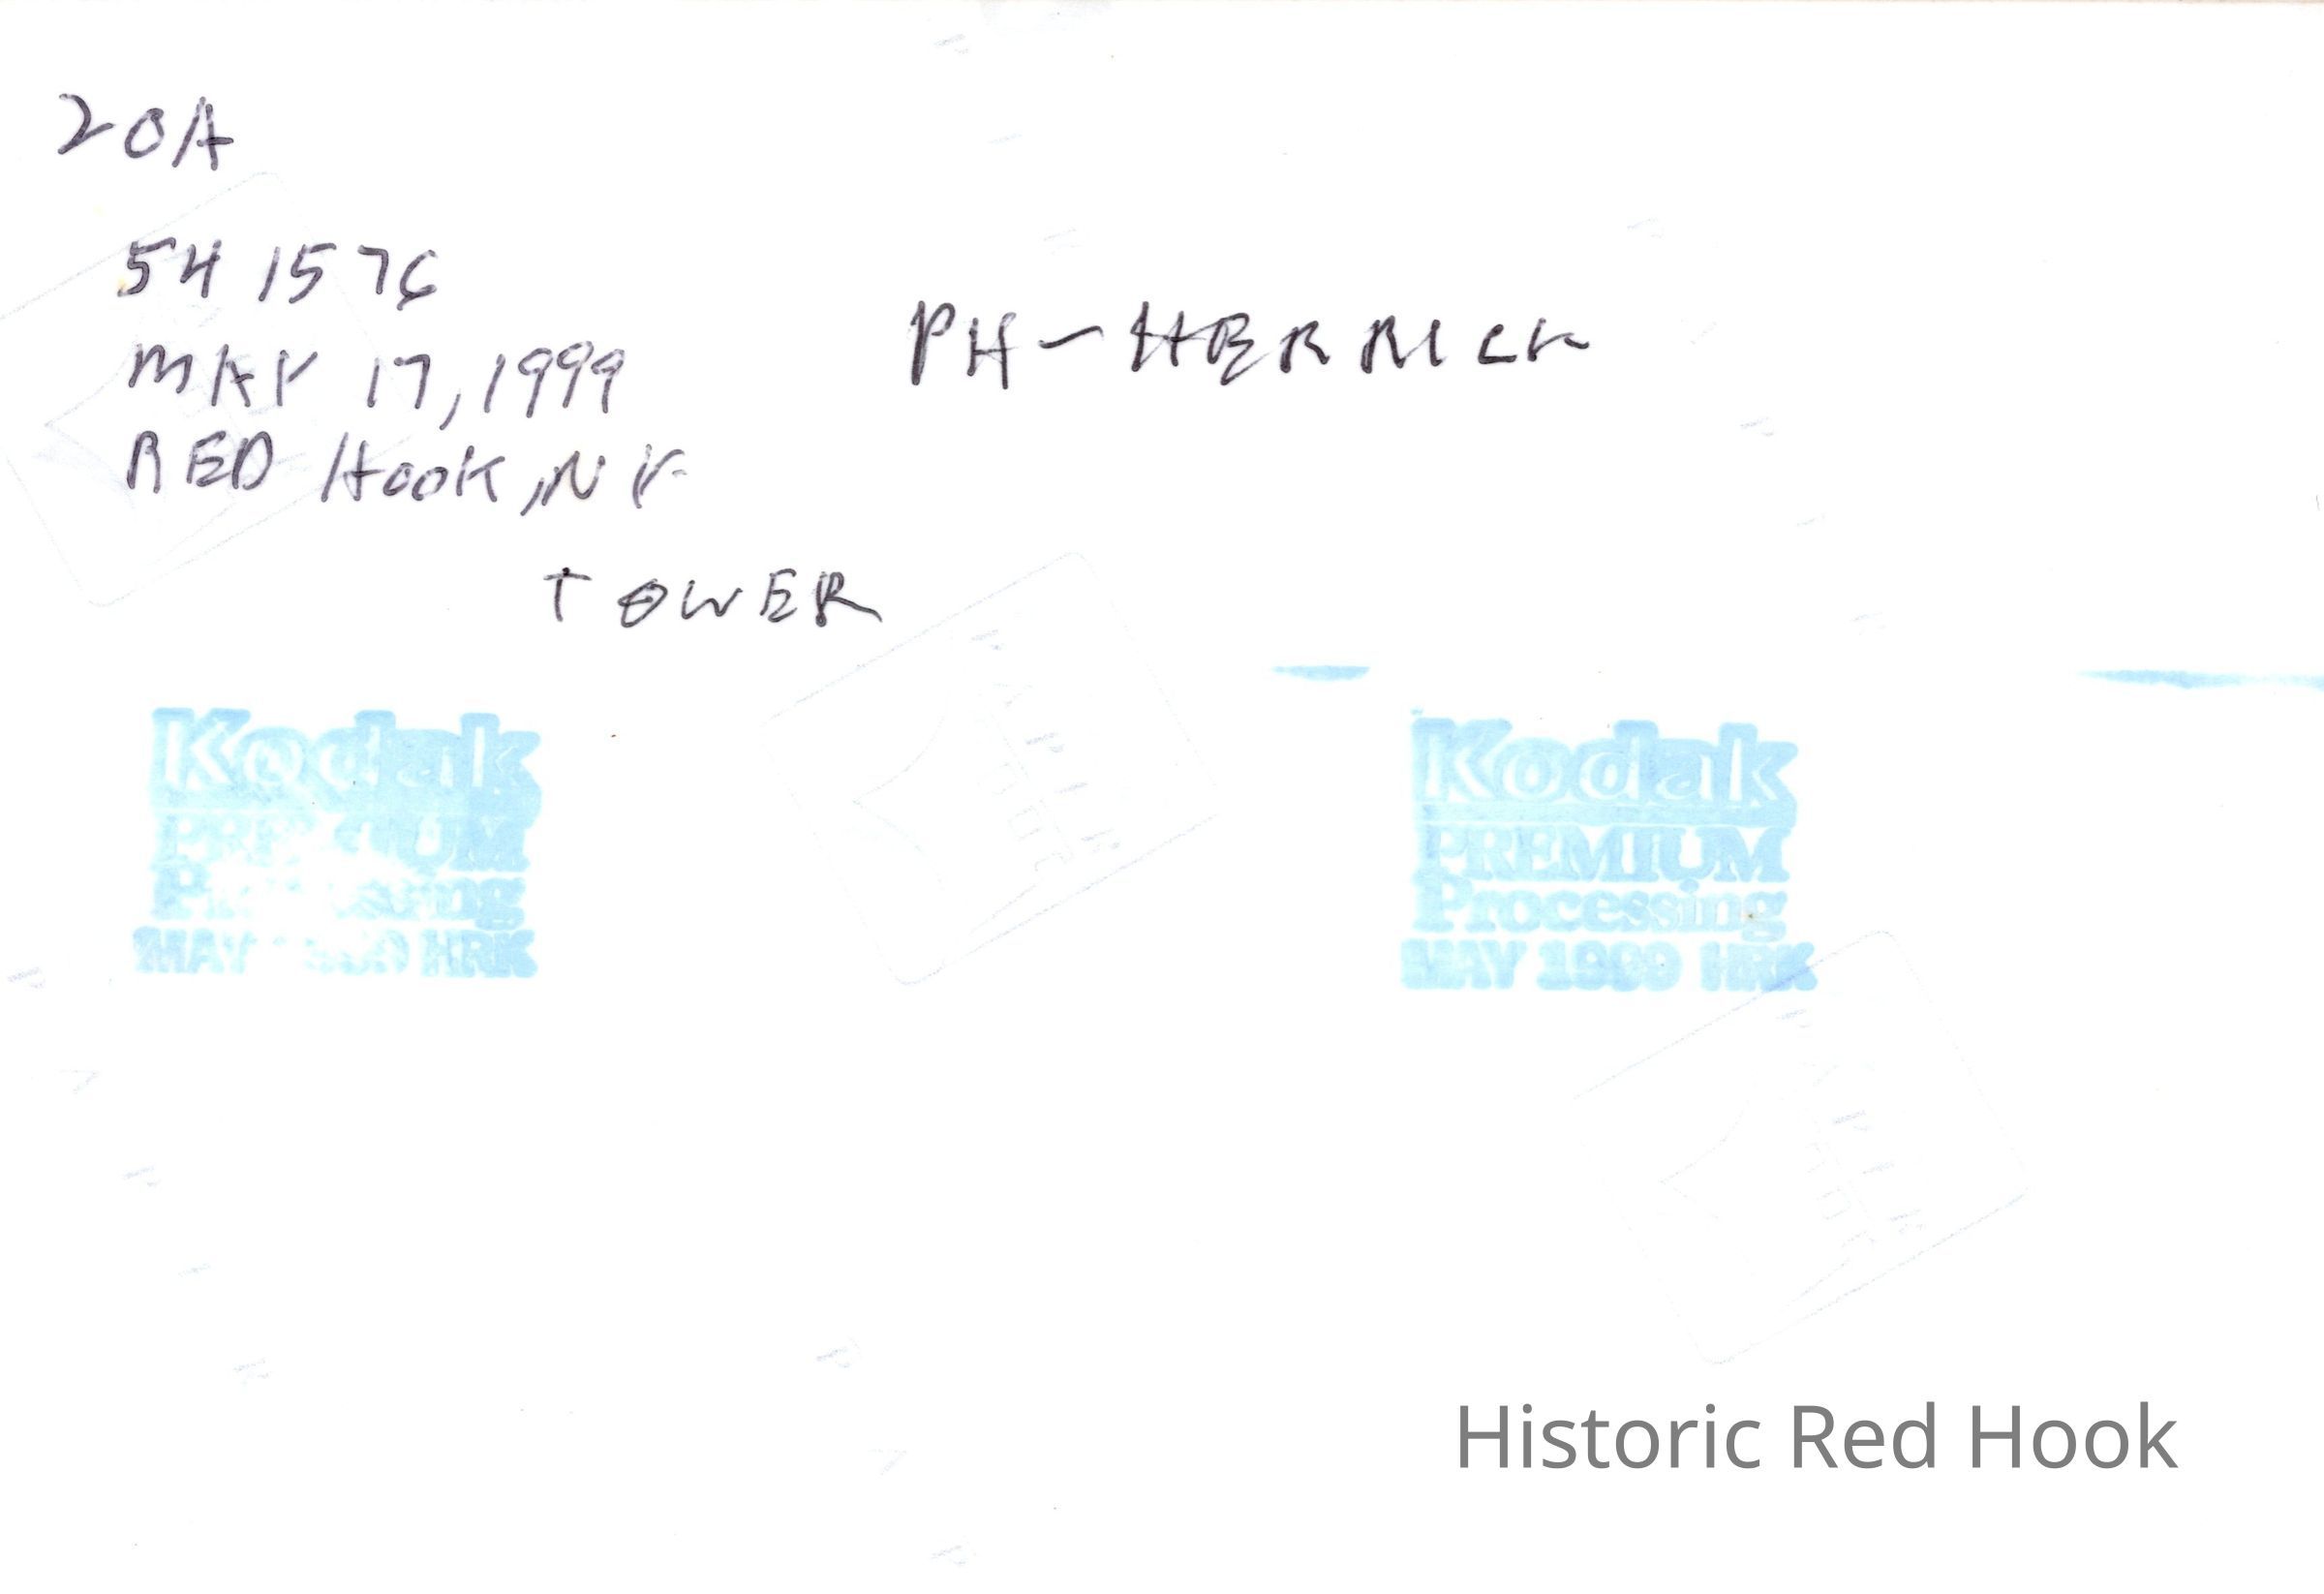 20A
54 1576
MAY 17, 1999
RED HOOK, NY
PH - HERRICK
TOWER
Kodak
PREMIUM
Processing
MAY HRK
Kodak
PREMIUM
Processing
MAY 1999 HRK
Historic Red Hook